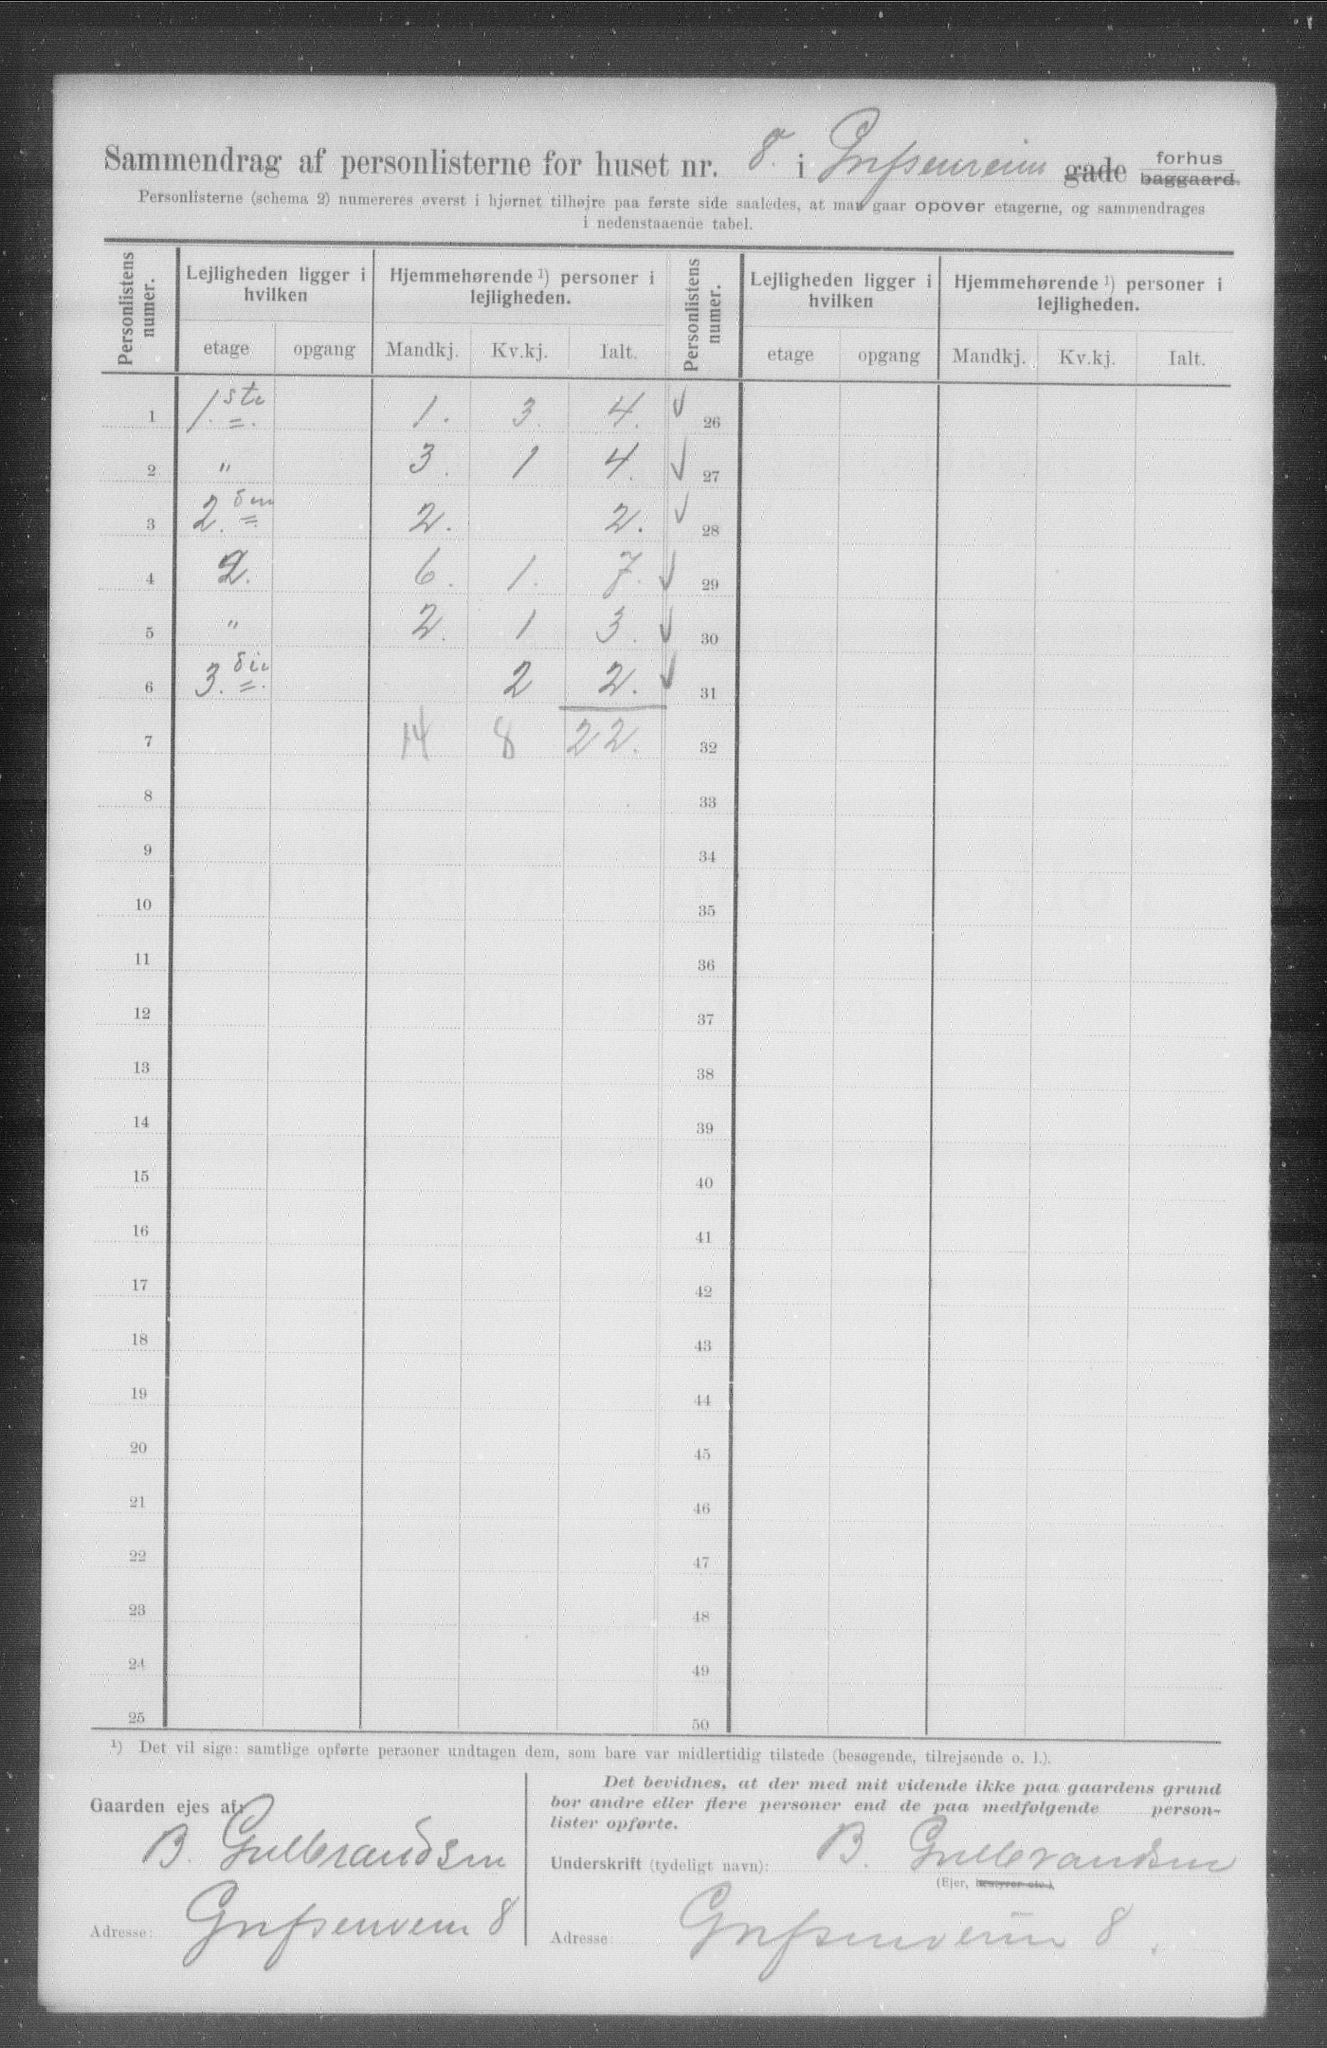 Sammendrag af personlisterne for huset nr. 8. i Grefsenveien gade forhus baggaard.
Personlisterne (schema 2) numereres øverst i hjørnet tilhøjre paa første side saaledes, at man gaar opover etagerne, og sammendrages
i nedenstaaende tabel.
Personlistens numer. Lejligheden ligger i hvilken Hjemmehørende ¹) personer i lejligheden. Personlistens numer. Lejligheden ligger i hvilken Hjemmehørende ¹) personer i lejligheden.
etage opgang Mandkj. Kv.kj. Ialt. etage opgang Mandkj. Kv.kj. Ialt.
1 1.ste 1. 3. 4. 26
2 " 3. 1 4. 27
3 2.den 2. 2. 28
4 2. 6. 1. 7. 29
5 " 2. 1 3. 30
6 3.die 2 2. 31
7 14 8 22. 32
8 33
9 34
10 35
11 36
12 37
13 38
14 39
15 40
16 41
17 42
18 43
19 44
20 45
21 46
22 47
23 48
24 49
25 50
¹) Det vil sige: samtlige opførte personer undtagen dem, som bare var midlertidig tilstede (besøgende, tilrejsende o. l.).
Gaarden ejes af:
B. Gulbrandsen
Adresse: Grefsenveien 8
Det bevidnes, at der med mit vidende ikke paa gaardens grund
bor andre eller flere personer end de paa medfølgende person-
lister opførte.
Underskrift (tydeligt navn): B. Gulbrandsen
(Ejer, bestyrer etc.)
Adresse: Grefsenveien 8.